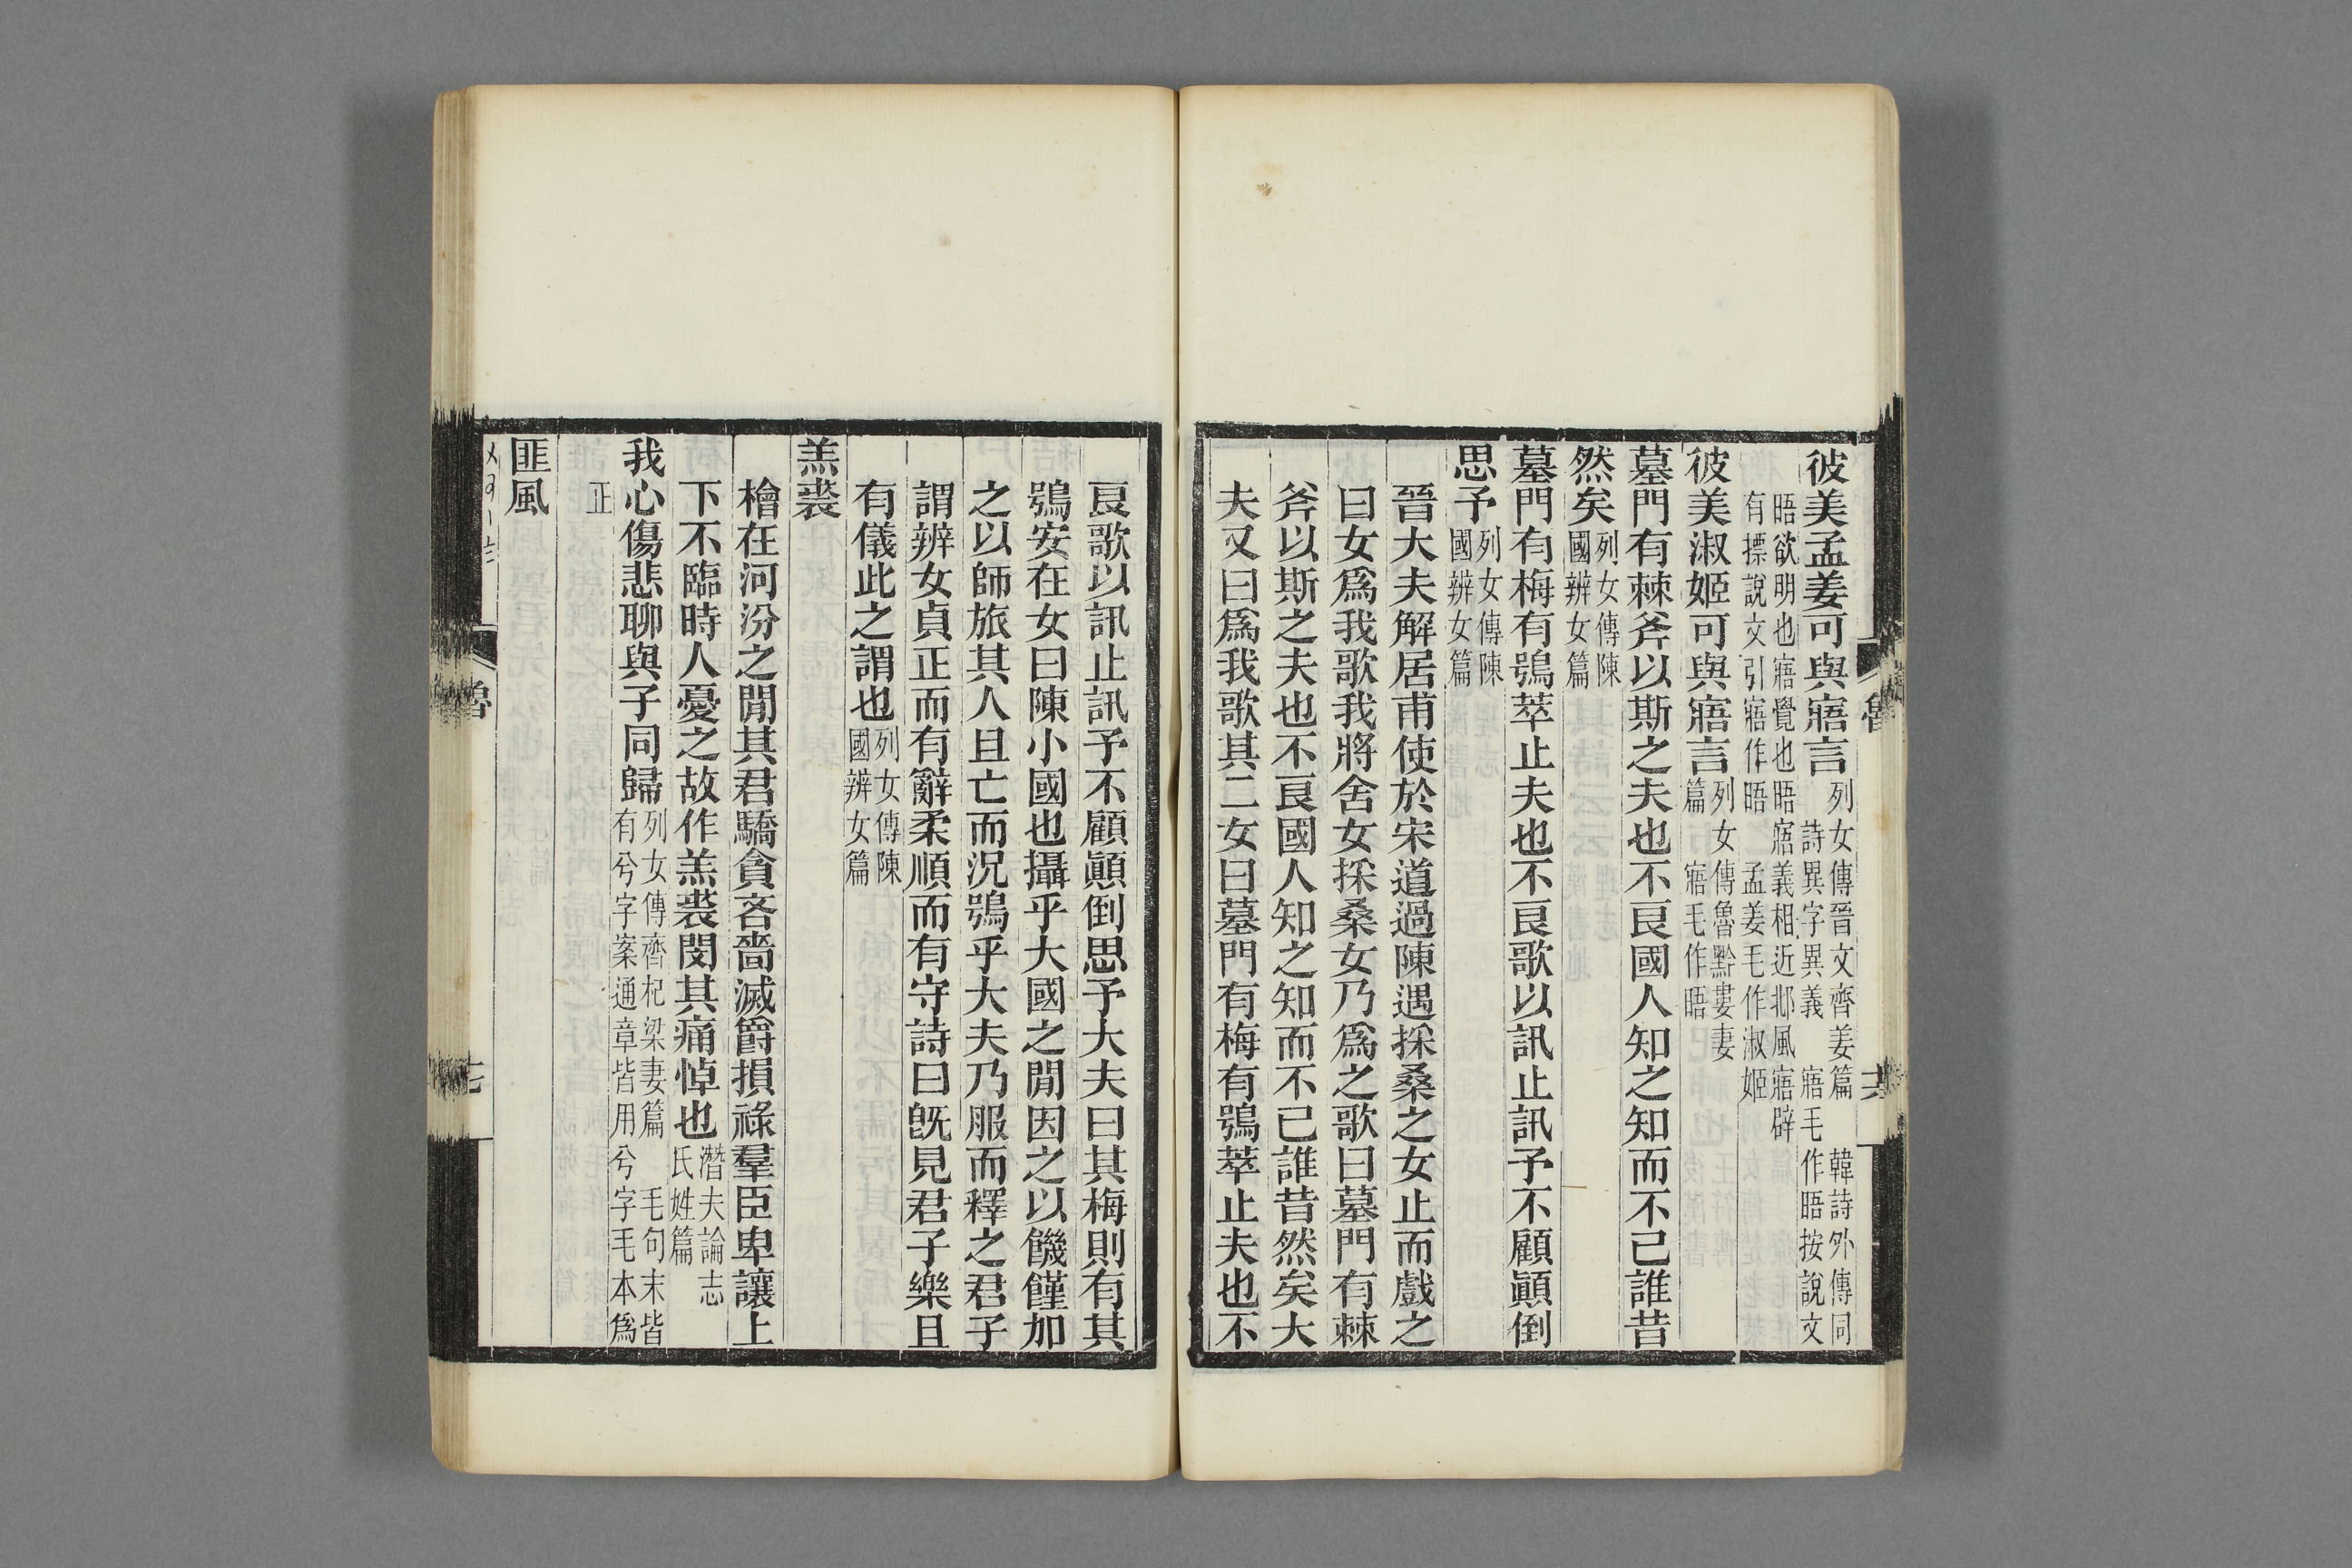 彼美孟姜可與寤言列女傳晉文齊姜篇 韓詩外傳同
詩異字異義 寤毛作晤按說文
晤欲明也寤覺也晤寤義相近邶風寤辟
有摽說文引寤作晤 孟姜毛作淑姬
彼美淑姬可與寤言列女傳魯黔婁妻
篇 寤毛作晤
墓門有棘斧以斯之夫也不良國人知之知而不已誰昔
然矣列女傳陳
國辨女篇
墓門有梅有鴞萃止夫也不良歌以訊止訊予不顧顛倒
思予列女傳陳
國辨女篇
晉大夫解居甫使於宋道過陳遇採桑之女止而戲之
曰女爲我歌我將舍女採桑女乃爲之歌曰墓門有棘
斧以斯之夫也不良國人知之知而不已誰昔然矣大
夫又曰爲我歌其二女曰墓門有梅有鴞萃止夫也不
良歌以訊止訊予不顧顛倒思予大夫曰其梅則有其
鴞安在女曰陳小國也攝乎大國之閒因之以饑饉加
之以師旅其人且亡而況鴞乎大夫乃服而釋之君子
謂辨女貞正而有辭柔順而有守詩曰旣見君子樂且
有儀此之謂也列女傳陳
國辨女篇
羔裘
檜在河汾之閒其君驕貪吝嗇滅爵損祿羣臣卑讓上
下不臨時人憂之故作羔裘閔其痛悼也潛夫論志
氏姓篇
我心傷悲聊與子同歸列女傳齊杞梁妻篇 毛句末皆
有兮字案通章皆用兮字毛本爲
正
匪風
魯